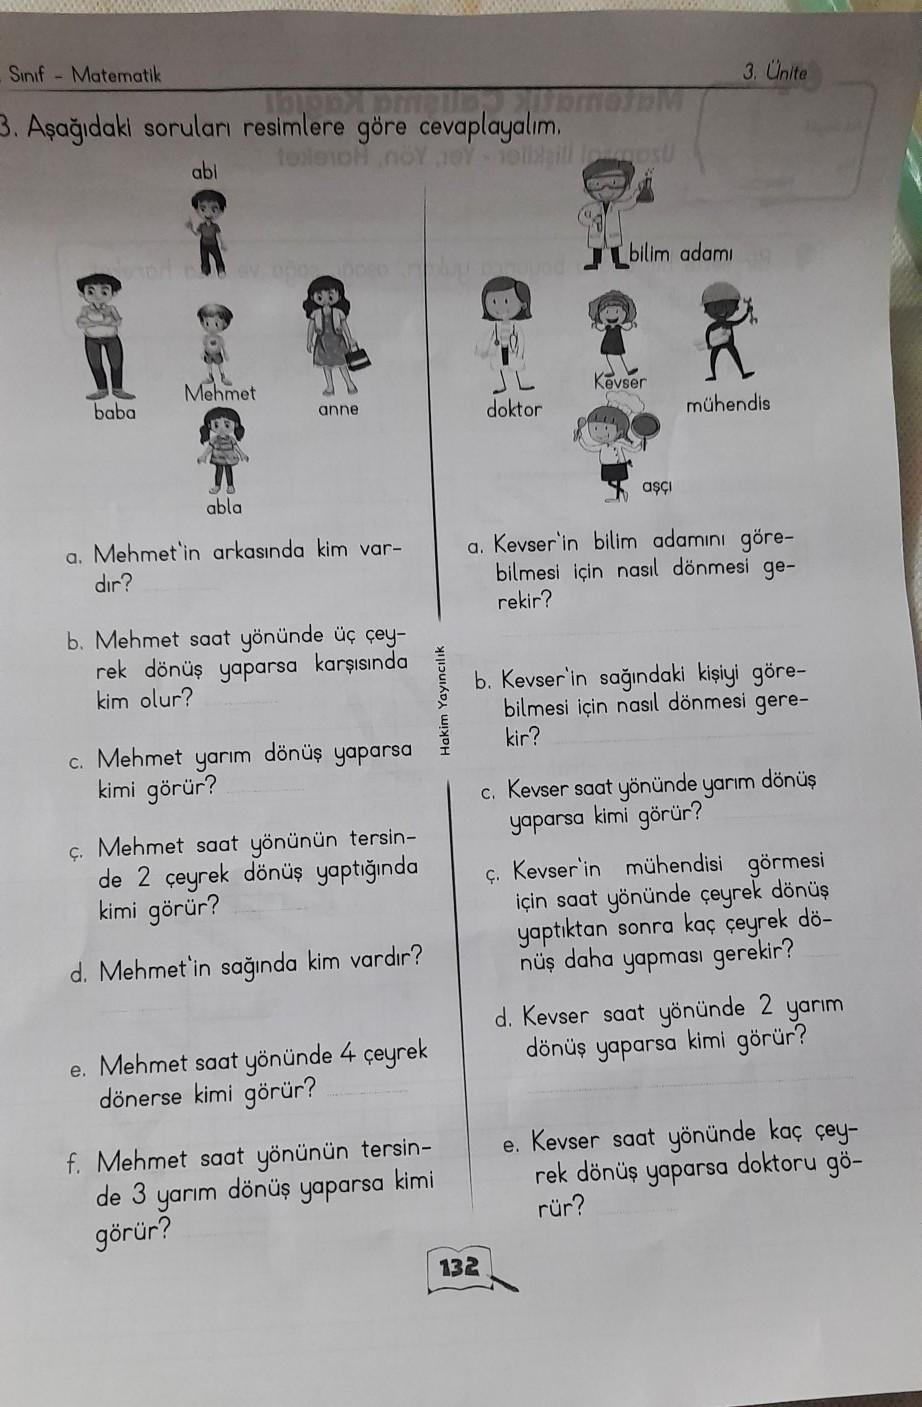 Sınıf - Matematik
3. Ünite
3. Aşağıdaki soruları resimlere göre cevaplayalım.
abi
baba
Mehmet
anne
abla
a. Mehmet'in arkasında kim var-
dır?
b. Mehmet saat yönünde üç çey-
rek dönüş yaparsa karşısında
kim olur?
c. Mehmet yarım dönüş yaparsa
kimi görür?
ç. Mehmet saat yönünün tersin-
de 2 çeyrek dönüş yaptığında
kimi görür?
d. Mehmet'in sağında kim vardır?
e. Mehmet saat yönünde 4 çeyrek
dönerse kimi görür?
f. Mehmet saat yönünün tersin-
de 3 yarım dönüş yaparsa kimi
görür?
Hakim Yayıncılık
bilim adamı
doktor
Kevser
mühendis
aşçı
a. Kevser'in bilim adamını göre-
bilmesi için nasıl dönmesi ge-
rekir?
b. Kevser'in sağındaki kişiyi göre-
bilmesi için nasıl dönmesi gere-
kir?
c. Kevser saat yönünde yarım dönüş
yaparsa kimi görür?
ç. Kevser'in mühendisi görmesi
için saat yönünde çeyrek dönüş
yaptıktan sonra kaç çeyrek dö-
nüş daha yapması gerekir?
d. Kevser saat yönünde 2 yarım
dönüş yaparsa kimi görür?
e. Kevser saat yönünde kaç çey-
rek dönüş yaparsa doktoru gö-
rür?
132